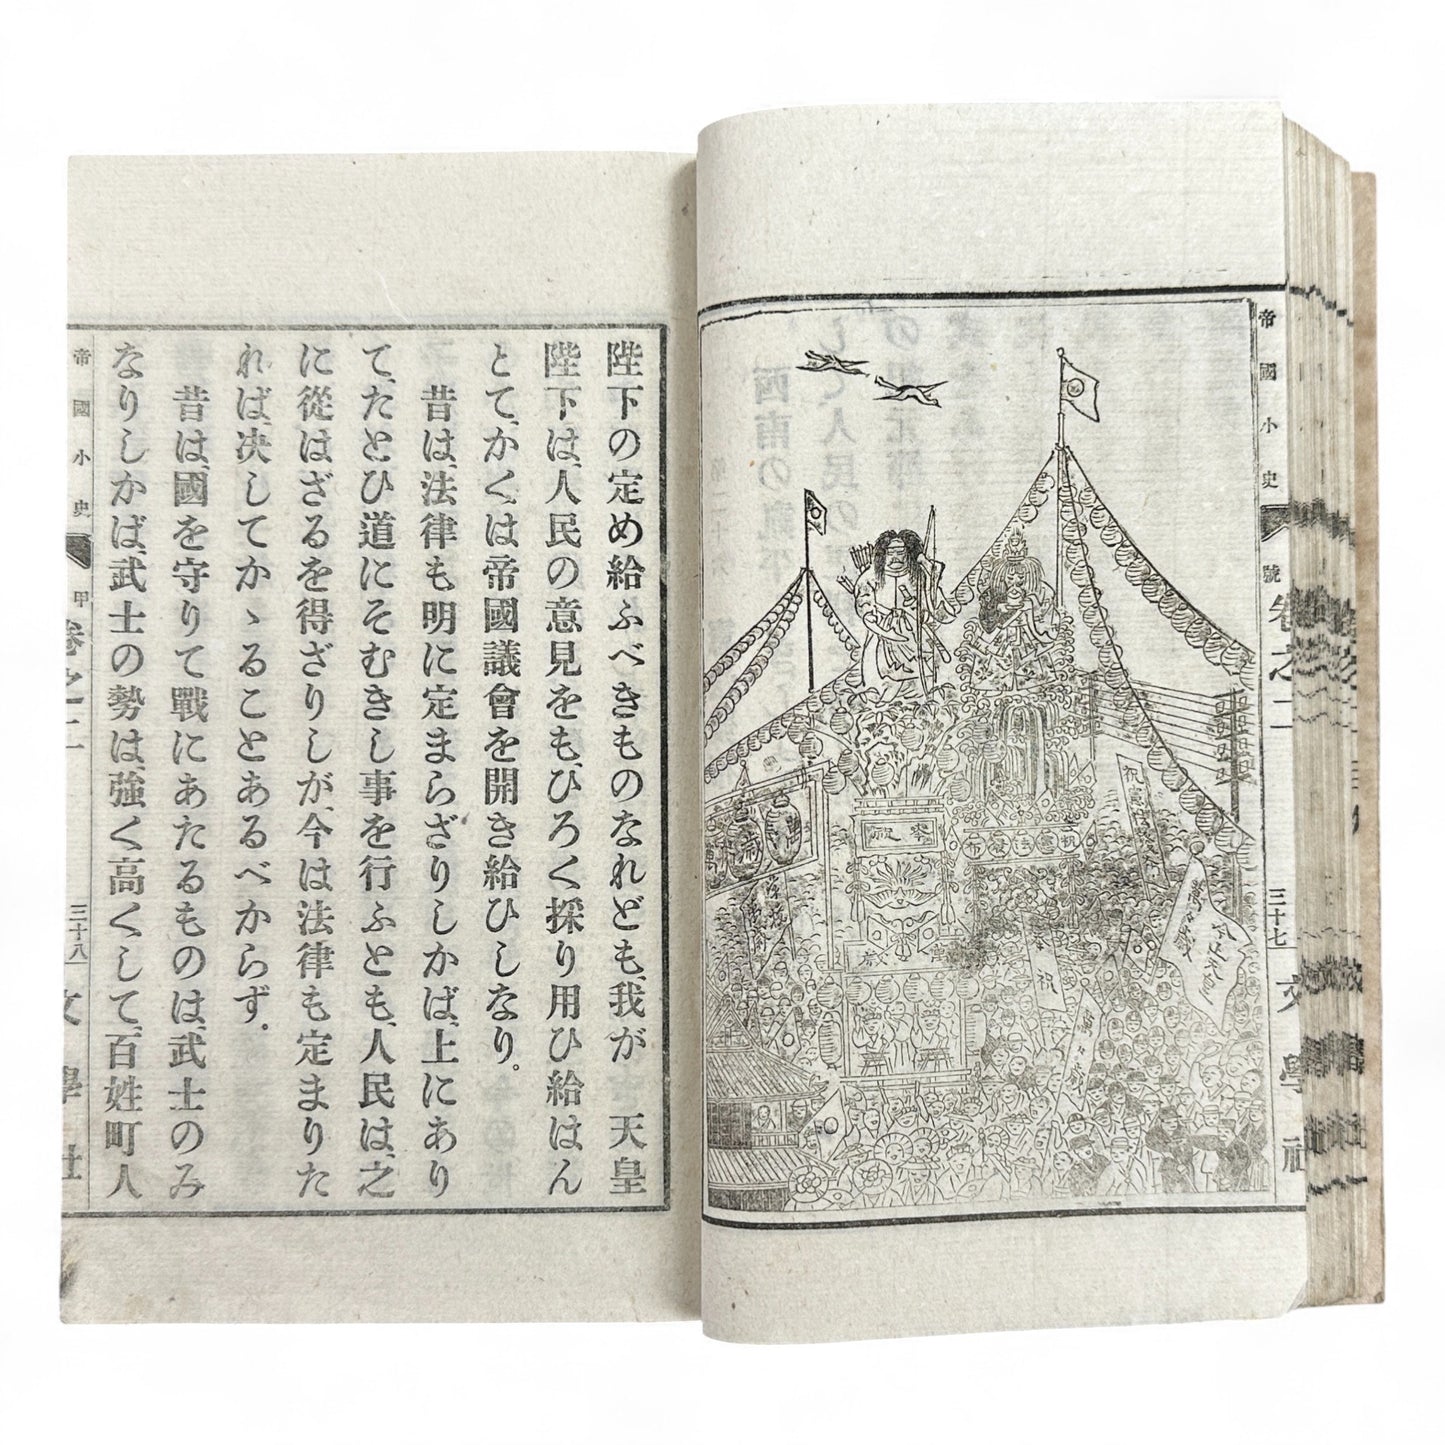 帝國小史
號
卷之二
三十七
文學社
祝
萬歳
陛下の定め給ふべきものなれども、我が 天皇
陛下は、人民の意見をも、ひろく採り用ひ給はん
とて、かくは帝國議會を開き給ひしなり。
昔は、法律も明に定まらざりしかば、上にあり
て、たとひ道にそむきし事を行ふとも、人民は、之
に從はざるを得ざりしが、今は法律も定まりた
れば、決してかゝることあるべからず。
昔は、國を守りて戰にあたるものは、武士のみ
なりしかば、武士の勢は、強く高くして、百姓町人
帝國小史
甲
卷之二
三十八
文學社